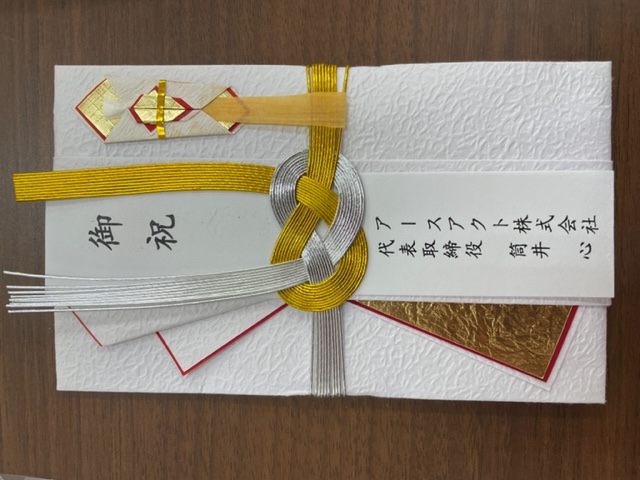 御祝
アースアクト株式会社
代表取締役 筒井 心